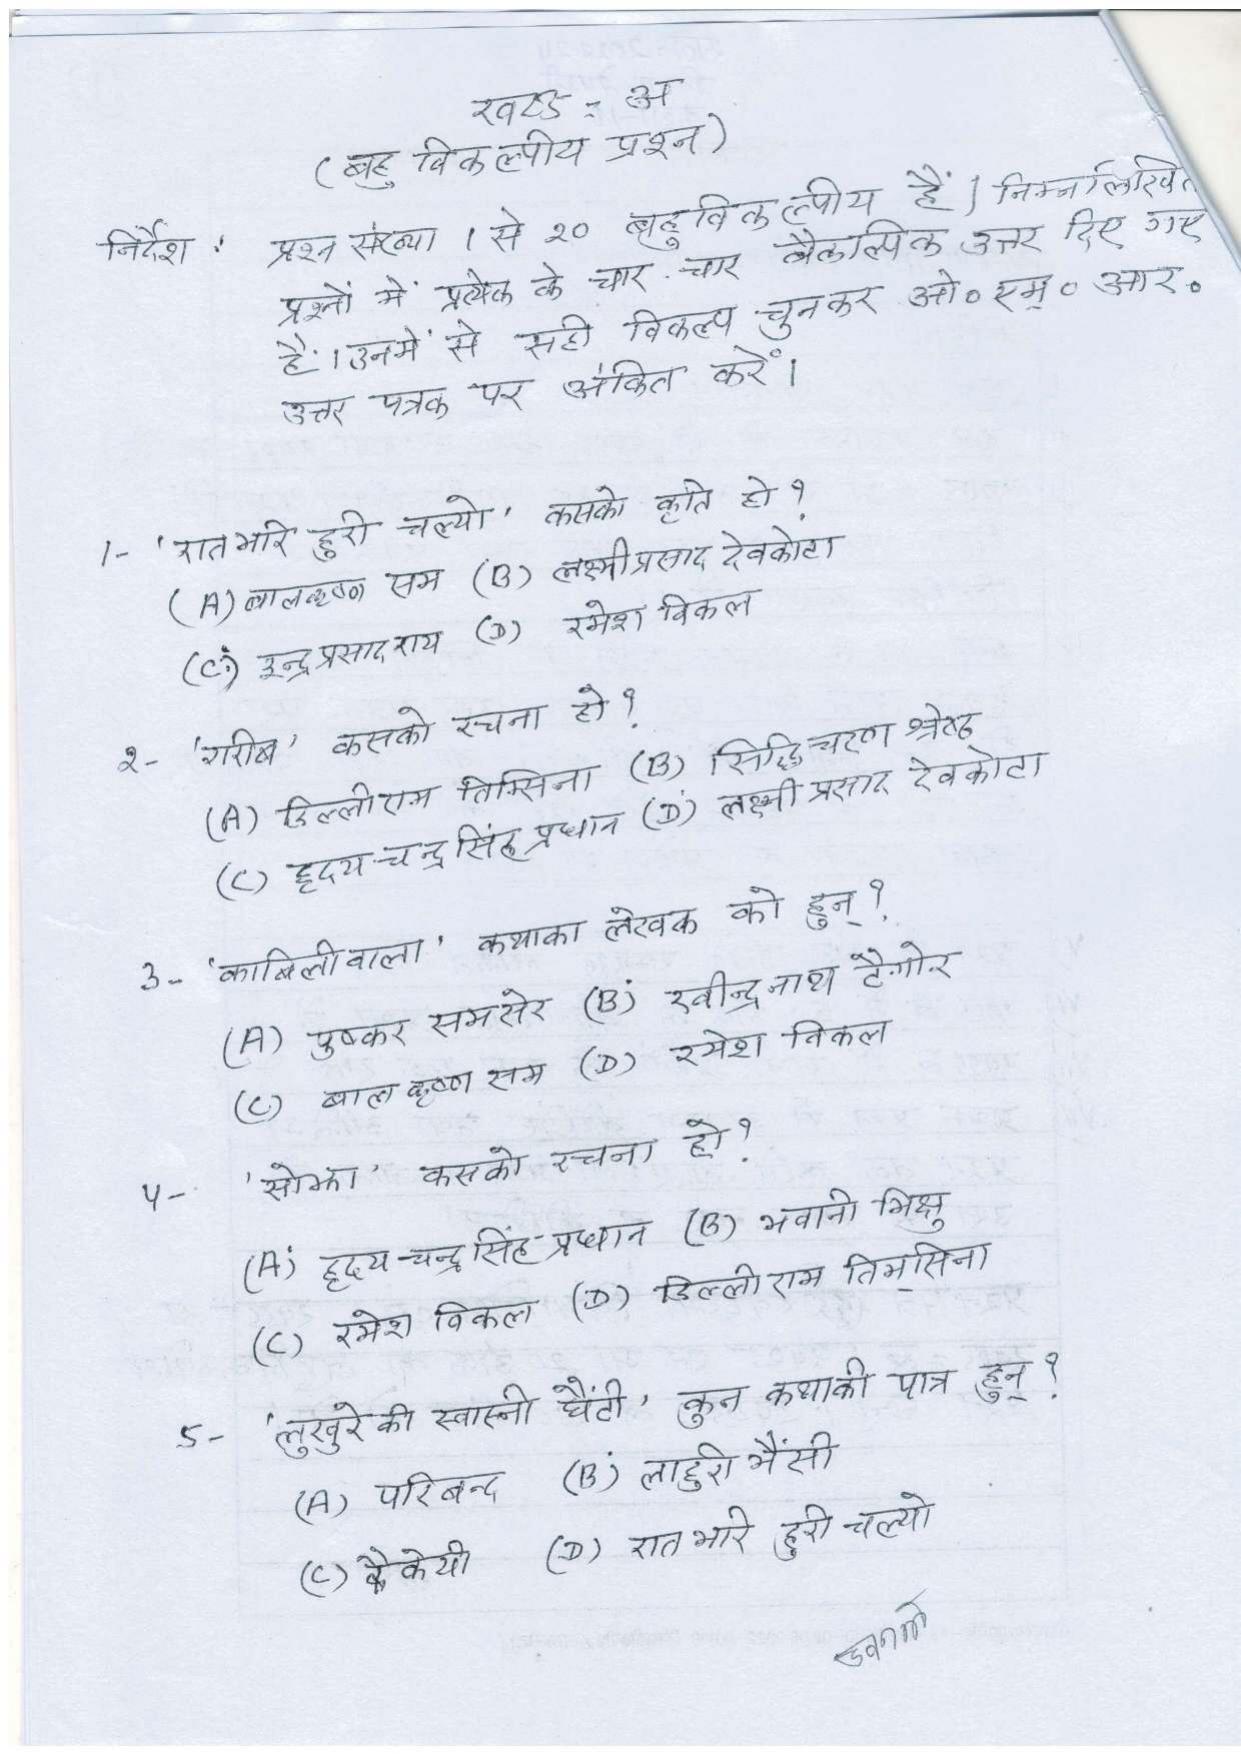 खण्ड : अ
(बहु विकल्पीय प्रश्न)
निर्देश : प्रश्न संख्या 1 से २० बहुविकल्पीय हैं। निम्नलिखित
प्रश्नों में प्रत्येक के चार-चार वैकल्पिक उत्तर दिए गए
हैं। उनमें से सही विकल्प चुनकर ओ० एम्० आर०
उत्तर पत्रक पर अंकित करें।
1- 'रातभरि हुरी चल्यो' कसको कृति हो ?
(A) बालकृष्ण सम (B) लक्ष्मीप्रसाद देवकोटा
(C) इन्द्रप्रसाद राय (D) रमेश विकल
२- 'गरीब' कसको रचना हो ?
(A) डिल्लीराम तिम्सिना (B) सिद्धिचरण श्रेष्ठ
(C) हृदयचन्द्र सिंह प्रधान (D) लक्ष्मी प्रसाद देवकोटा
3- 'काबिलीवाला' कथाका लेखक को हुन् ?
(A) पुष्कर समसेर (B) रवीन्द्रनाथ टैगोर
(C) बालकृष्ण सम (D) रमेश विकल
५- 'सोझा' कसको रचना हो ?
(A) हृदयचन्द्र सिंह प्रधान (B) भवानी भिक्षु
(C) रमेश विकल (D) डिल्लीराम तिम्सिना
5- 'लुखुरेकी स्वास्नी घैंटी' कुन कथाकी पात्र हुन् ?
(A) परिबन्द (B) लाहुरी भैंसी
(C) कैकेयी (D) रातभरि हुरी चल्यो